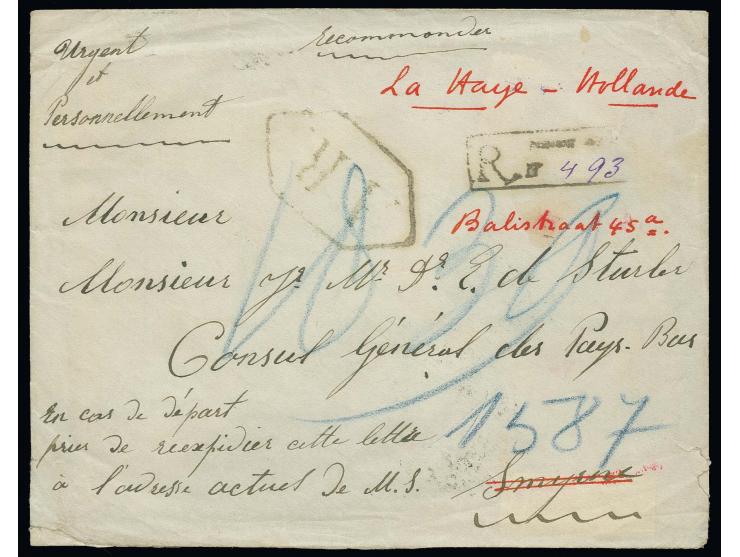 Urgent
et
Personnellement
Recommander
La Haye - Hollande
A.R.
R. N 493
Monsieur
Balistraat 45 a.
Monsieur Jr. Mr. Dr. E. de Sturler
1839
Consul Général des Pays-Bas
En cas de départ
prier de réexpidier cette lettre
à l'adresse actuel de M.S.
1587
Smyrne